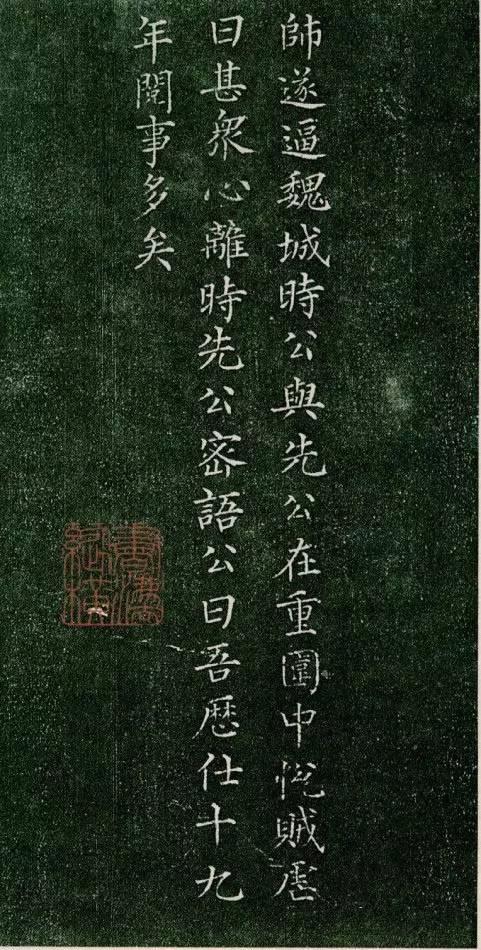 師遂逼魏城時公與先公在重圍中賊虐
曰甚衆心離時先公密語公曰吾歷仕十九
年閱事多矣